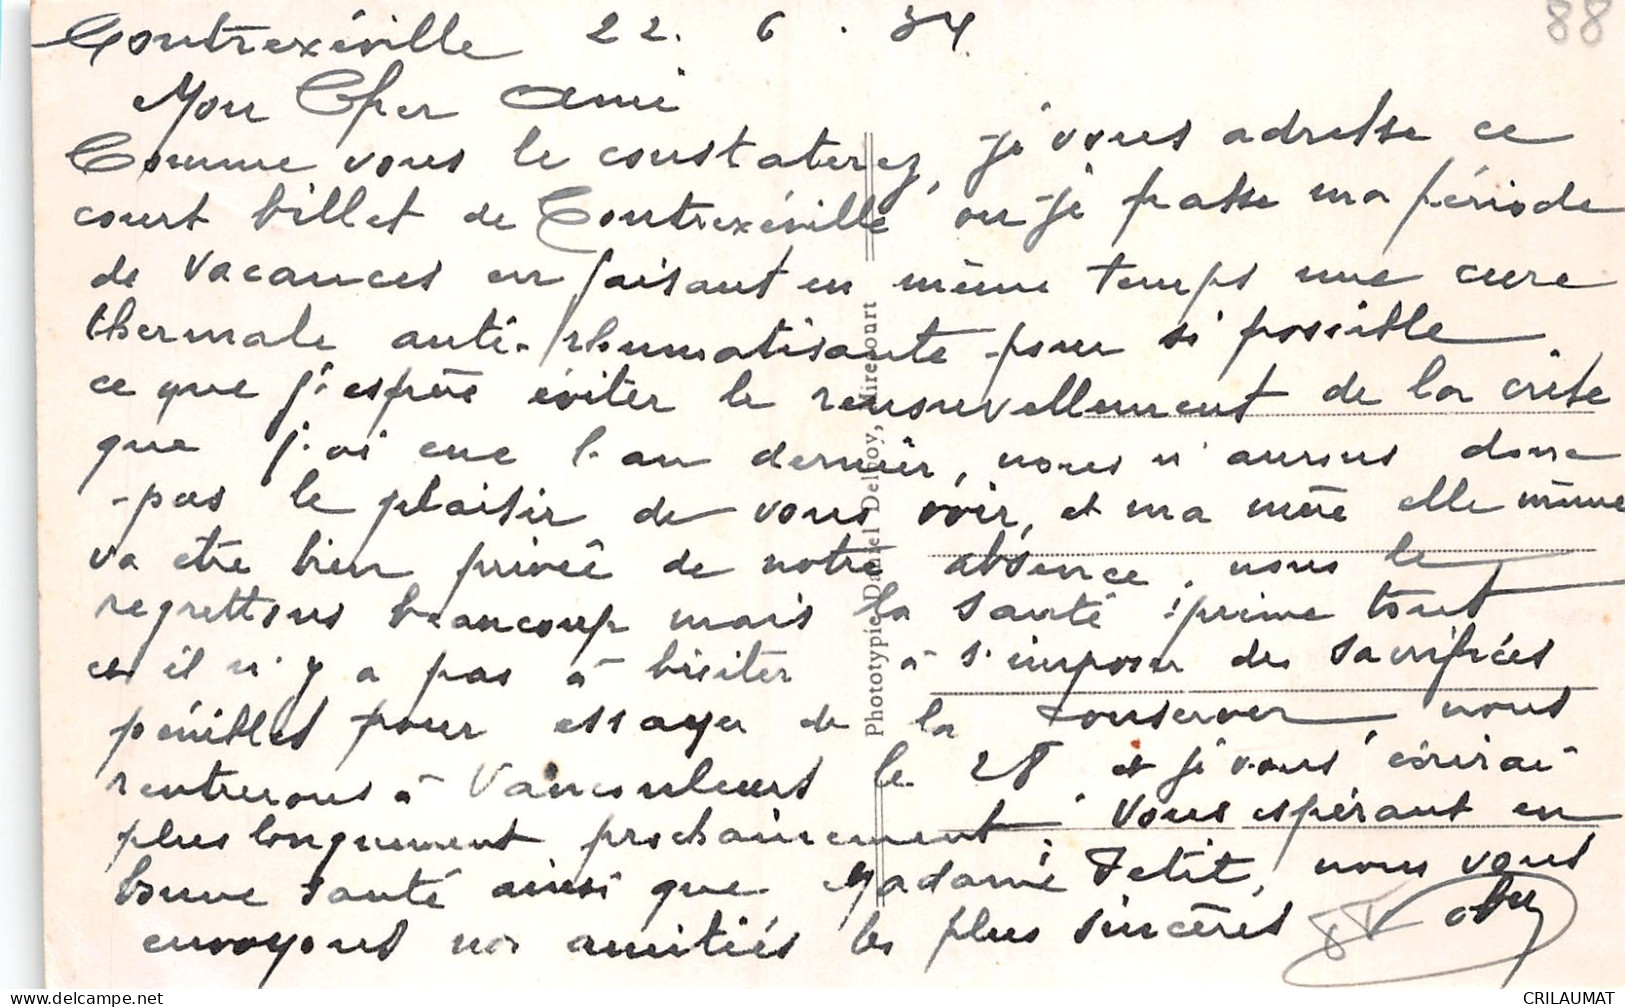 Contrexéville 22. 6. 34
88
Mon Cher Ami
Comme vous le constaterez, je vous adresse ce
court billet de Contrexéville où je passe ma période
de vacances en faisant en même temps une cure
thermale anti-rhumatisante pour si possible
ce que j'espère éviter le renouvellement de la crise
que j'ai eue l'an dernier, nous n'aurons donc
pas le plaisir de vous voir, et ma mère elle même
va être bien privée de notre absence, nous le
regrettons beaucoup mais la santé prime tout
et il n'y a pas à hésiter à s'imposer des sacrifices
pénibles pour essayer de la conserver, nous
rentrerons à Vaucouleurs le 28 et je vous écrirai
plus longuement prochainement. Vous espérant en
bonne santé ainsi que Madame Petit, nous vous
envoyons nos amitiés les plus sincères
Phototypie Daniel Delboy, Mirecourt
delcampe.net
CRILAUMAT